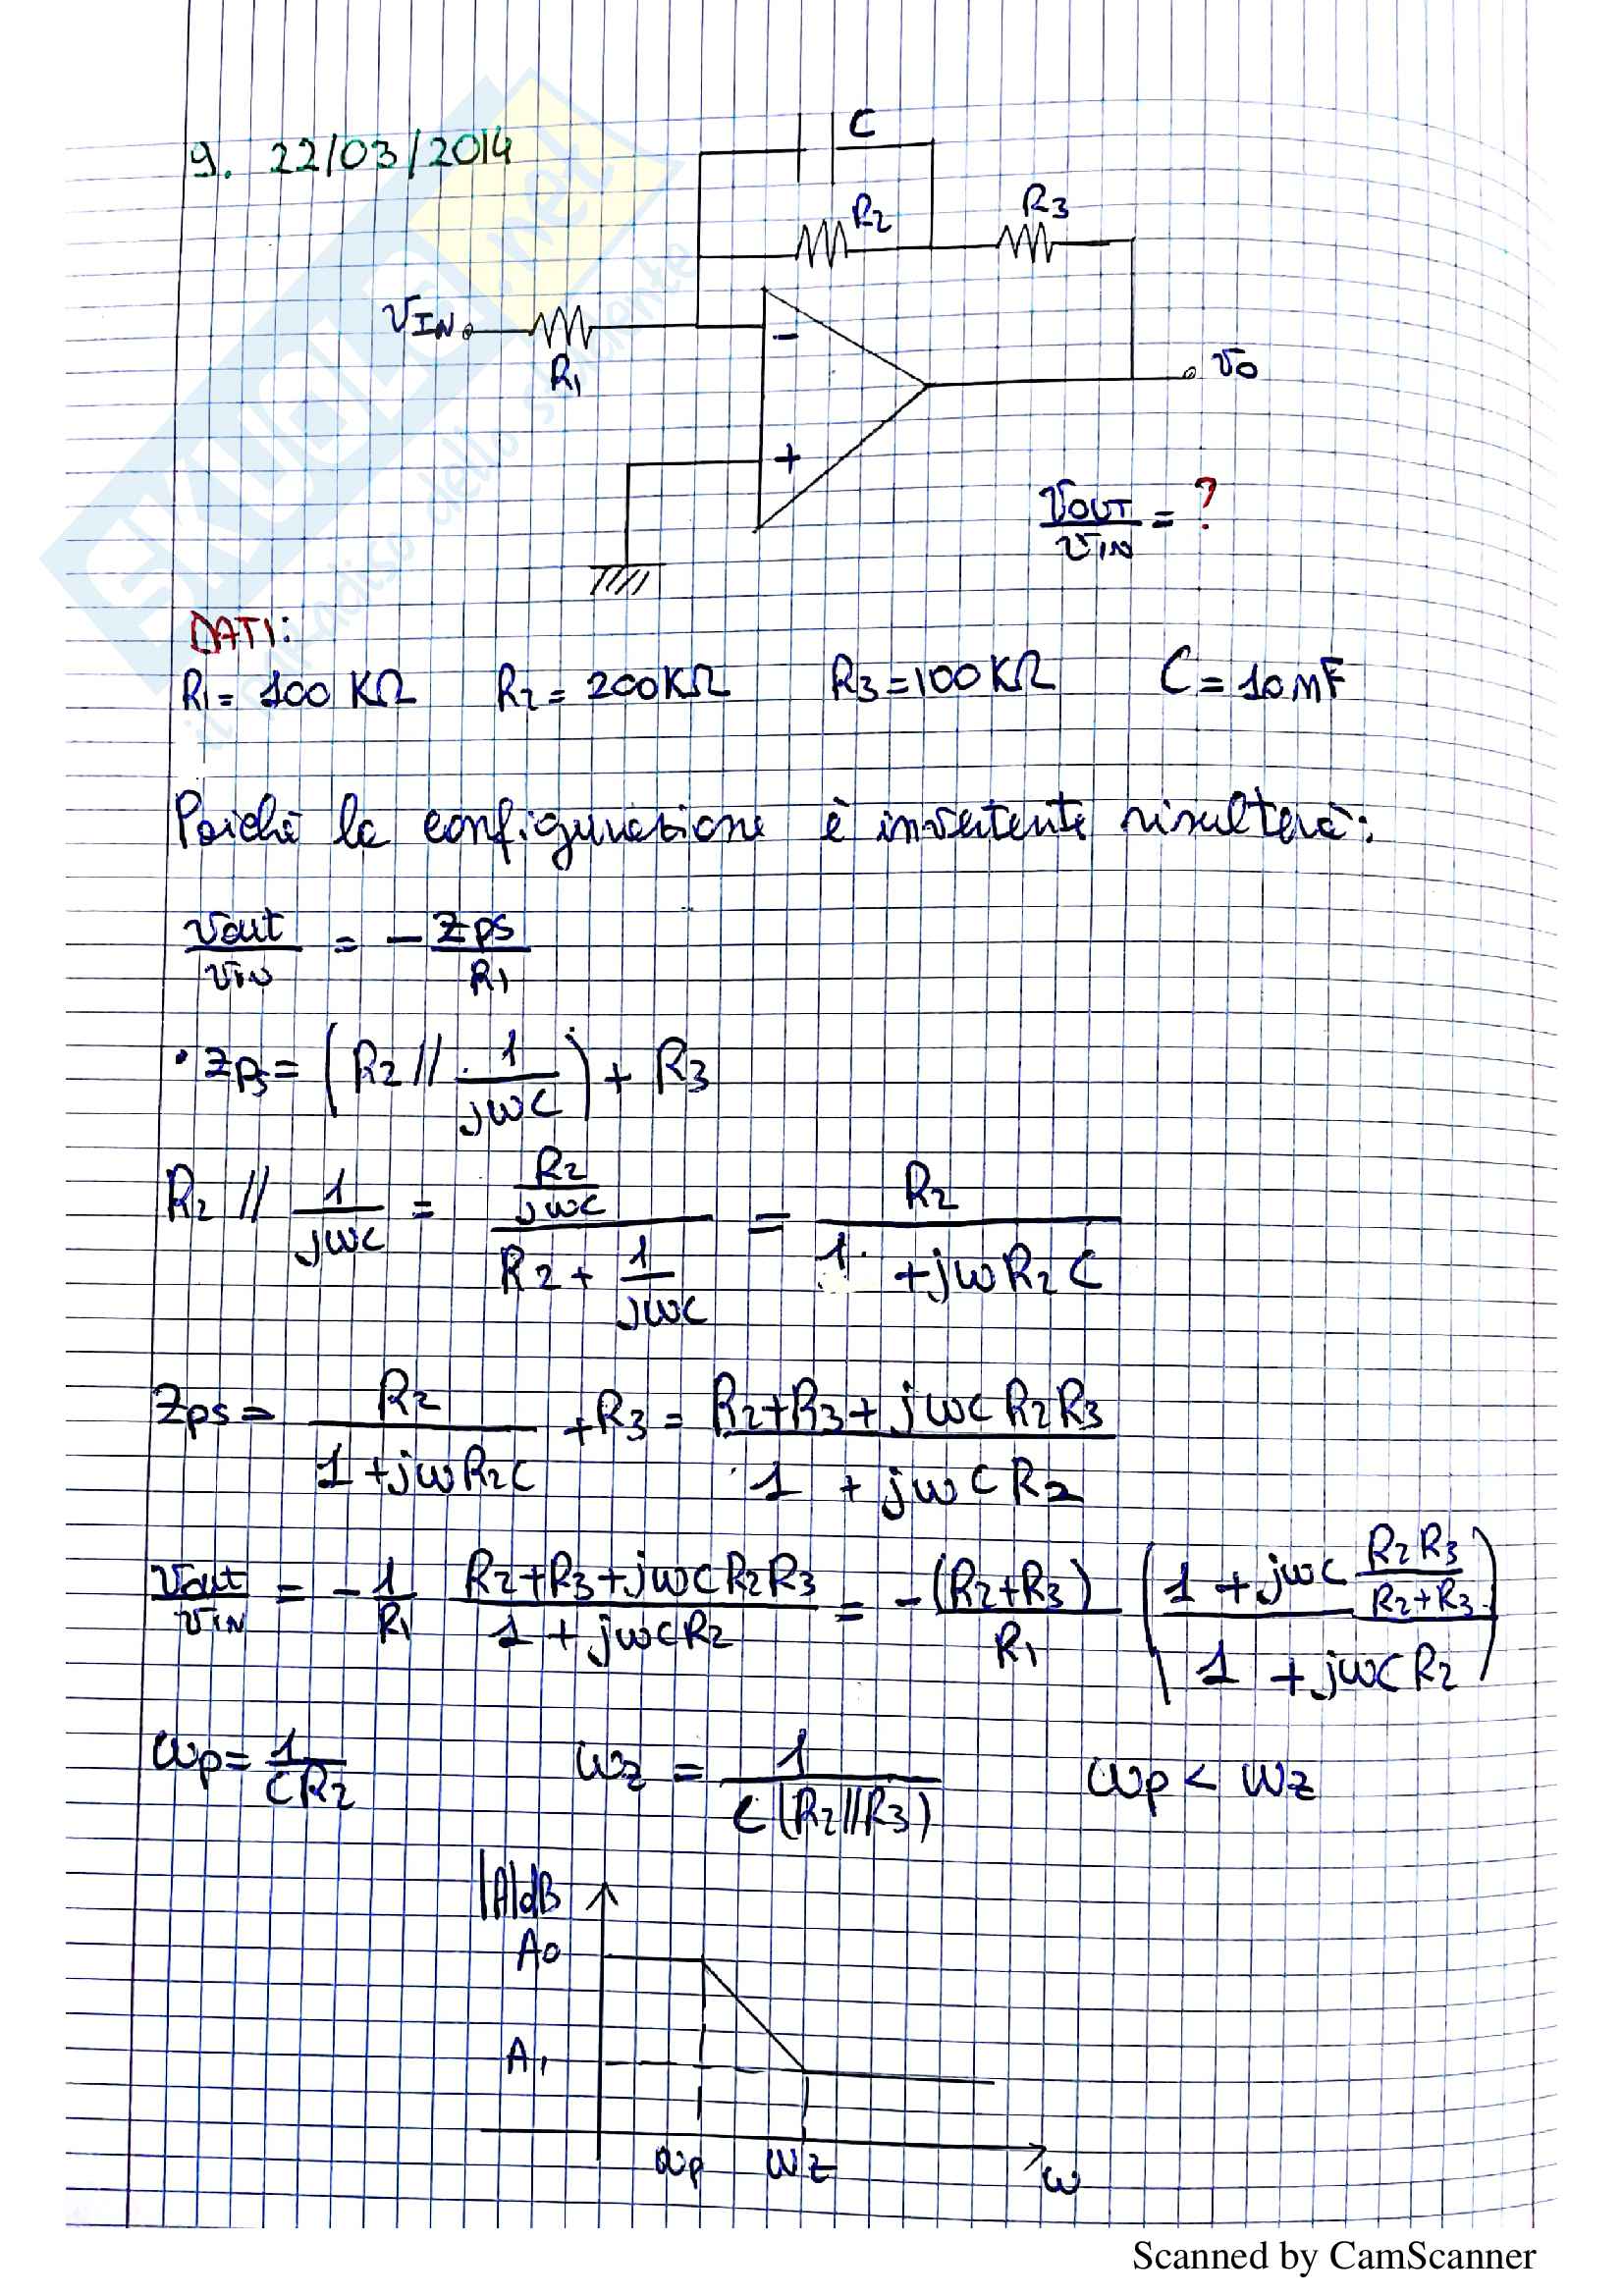 9. 22/03/2014
C
R2
R3
VIN
R1
-
+
vo
VOUT/VIN = ?
DATI:
R1 = 100 KΩ R2 = 200KΩ R3 = 100 KΩ C = 10 nF
Poiché la configurazione è invertente risulterà:
vout/vIN = - Zps/R1
• Zps = (R2 // 1/jωC) + R3
R2 // 1/jωC = (R2/jωC)/(R2 + 1/jωC) = R2/(1 + jωR2C)
Zps = R2/(1 + jωR2C) + R3 = (R2+R3+jωCR2R3)/(1 + jωCR2)
Vout/VIN = - 1/R1 (R2+R3+jωCR2R3)/(1 + jωCR2) = - (R2+R3)/R1 ((1 + jωC R2R3/(R2+R3))/(1 + jωCR2))
ωp = 1/CR2 ωz = 1/C(R2//R3) ωp < ωz
|A|dB
A0
A1
ωp ωz ω
SKUOLA.net
il paradiso dello studente
Scanned by CamScanner